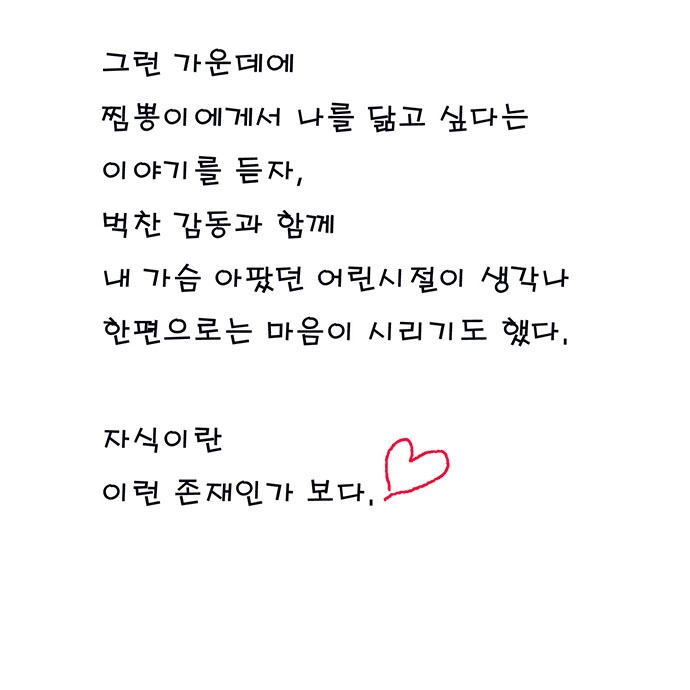 그런 가운데에
찜뽕이에게서 나를 닮고 싶다는
이야기를 듣자,
벅찬 감동과 함께
내 가슴 아팠던 어린시절이 생각나
한편으로는 마음이 시리기도 했다.
자식이란
이런 존재인가 보다.